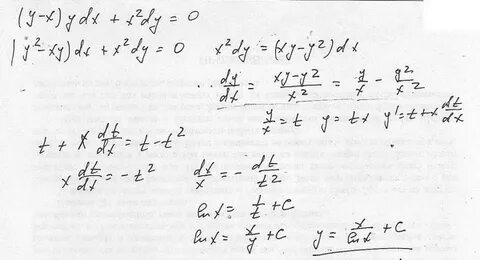 (y-x) y dx + x²dy = 0
(y²-xy)dx + x²dy = 0   x²dy = (xy-y²)dx
dy/dx = (xy-y²)/x² = y/x - y²/x²
y/x = t   y = tx   y' = t + x dt/dx
t + x dt/dx = t - t²
x dt/dx = -t²   dx/x = - dt/t²
ln x = 1/t + C
ln x = x/y + C   y = x/ln x + C